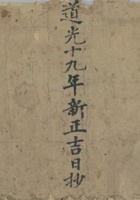 道光十九年新正吉日抄